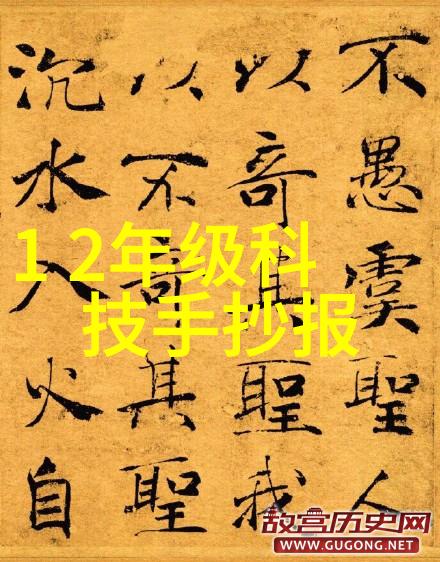 不愚虞聖人
以奇其聖我
以不奇其聖
沉水入火自
1 2年级科
技手抄报
故宫历史网
WWW.GUGONG.NET